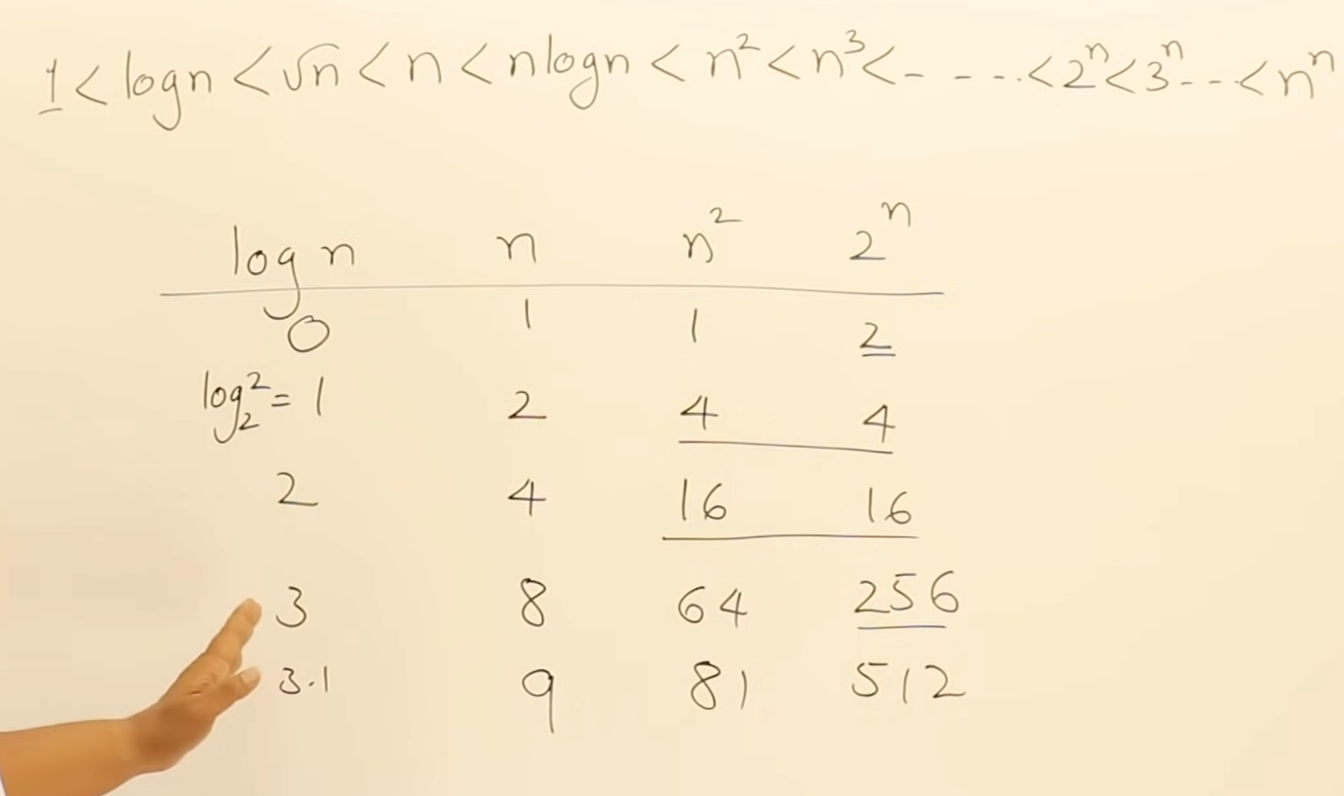 1 < log n < √n < n < n log n < n² < n³ < - - - .. < 2ⁿ < 3ⁿ - - - < nⁿ
log n n n² 2ⁿ
0 1 1 2
log₂² = 1 2 4 4
2 4 16 16
3 8 64 256
3.1 9 81 512